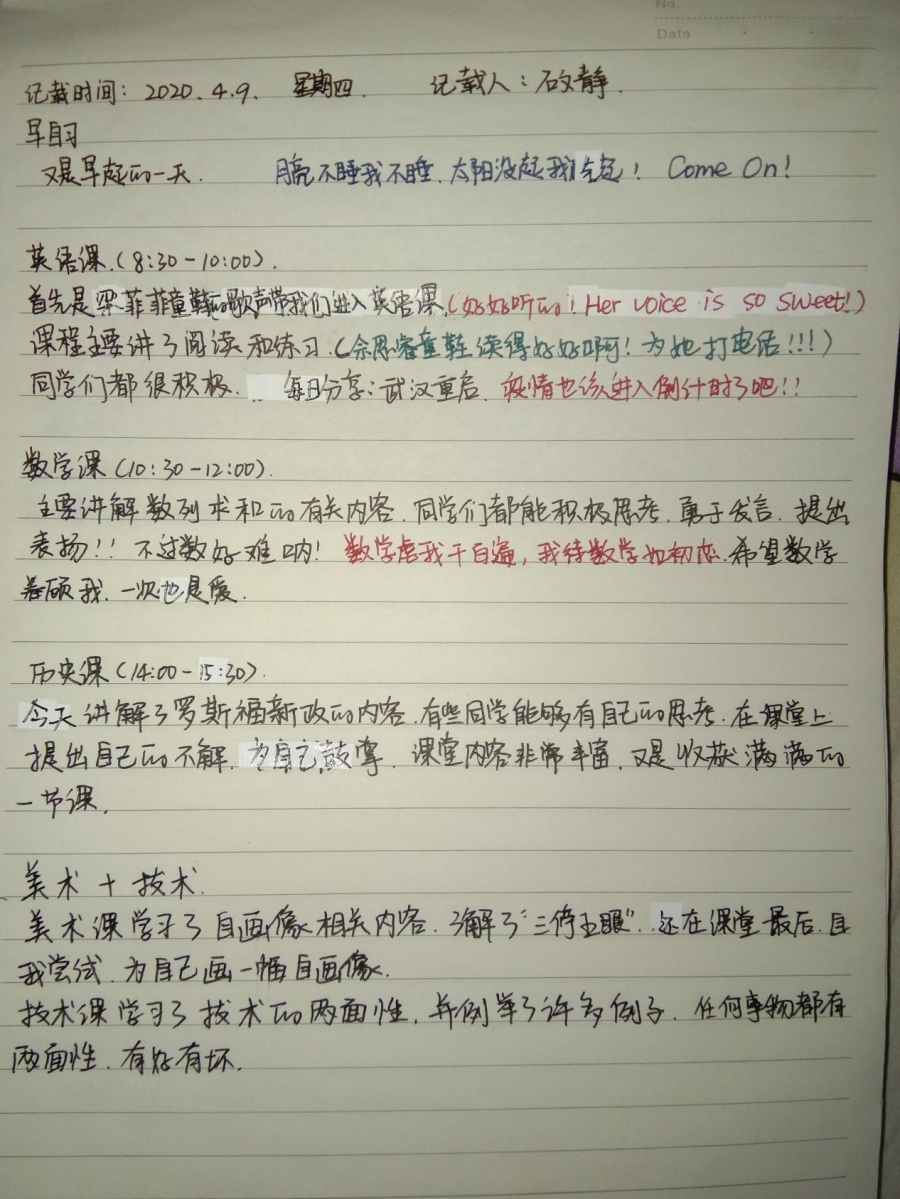 No.
Date
记载时间：2020.4.9. 星期四. 记载人：石文静.
早自习
又是早起的一天. 月亮不睡我不睡，太阳没起我先起！ Come On！
英语课.(8:30-10:00).
首先是梁菲菲童鞋的歌声带我们进入英语课.(好好听的！Her voice is so sweet!)
课程主要讲了阅读和练习.(佘思睿童鞋读得好好啊！为她打电话!!!)
同学们都很积极. 每日分享：武汉重启. 疫情也该进入倒计时了吧!!
数学课(10:30-12:00).
主要讲解数列求和的有关内容.同学们都能积极思考.勇于发言.提出
表扬!! 不过数好难呐! 数学虐我千百遍，我待数学如初恋.希望数学
眷顾我.一次也是爱.
历史课(14:00-15:30).
今天讲解了罗斯福新政的内容.有些同学能够有自己的思考.在课堂上
提出自己的不解.为自己鼓掌.课堂内容非常丰富.又是收获满满的
一节课.
美术+技术.
美术课学习了自画像相关内容.了解了“三停五眼”.还在课堂最后.自
我尝试.为自己画一幅自画像.
技术课学习了技术的两面性.并例举了许多例子.任何事物都有
两面性.有好有坏.